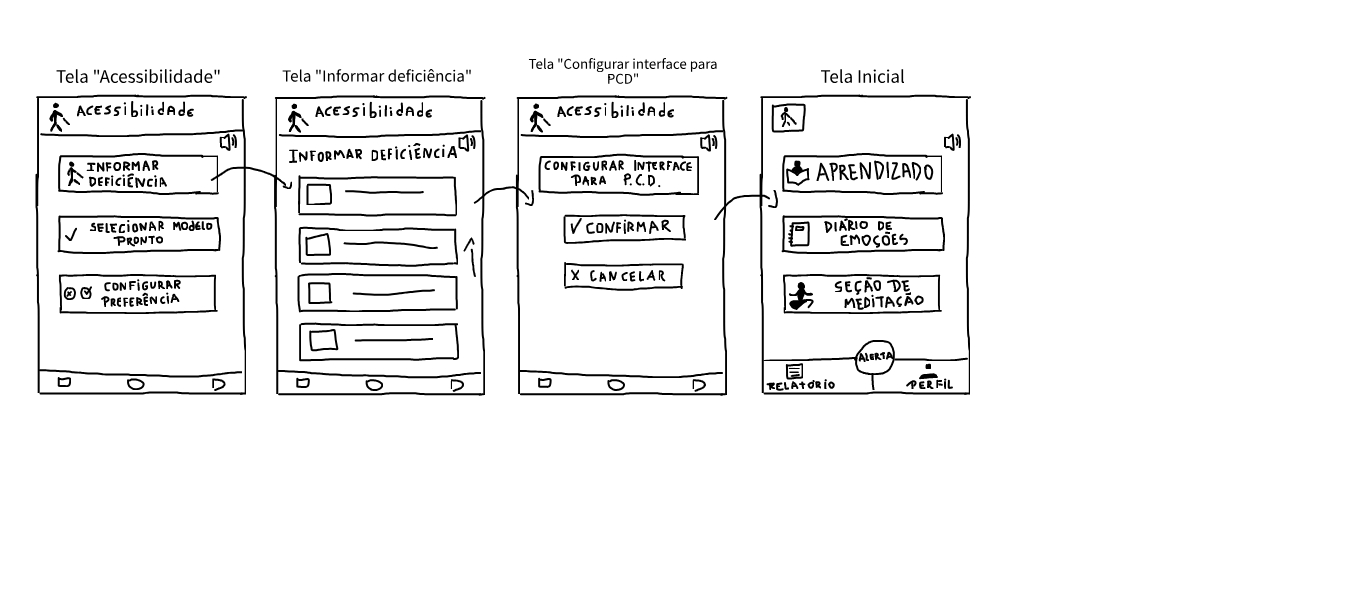 Tela "Acessibilidade"
ACESSIBILIDADE
INFORMAR
DEFICIÊNCIA
SELECIONAR MODELO
PRONTO
CONFIGURAR
PREFERÊNCIA
Tela "Informar deficiência"
ACESSIBILIDADE
INFORMAR DEFICIÊNCIA
Tela "Configurar interface para
PCD"
ACESSIBILIDADE
CONFIGURAR INTERFACE
PARA P.C.D.
CONFIRMAR
X CANCELAR
Tela Inicial
APRENDIZADO
DIÁRIO DE
EMOÇÕES
SEÇÃO DE
MEDITAÇÃO
ALERTA
RELATÓRIO
PERFIL